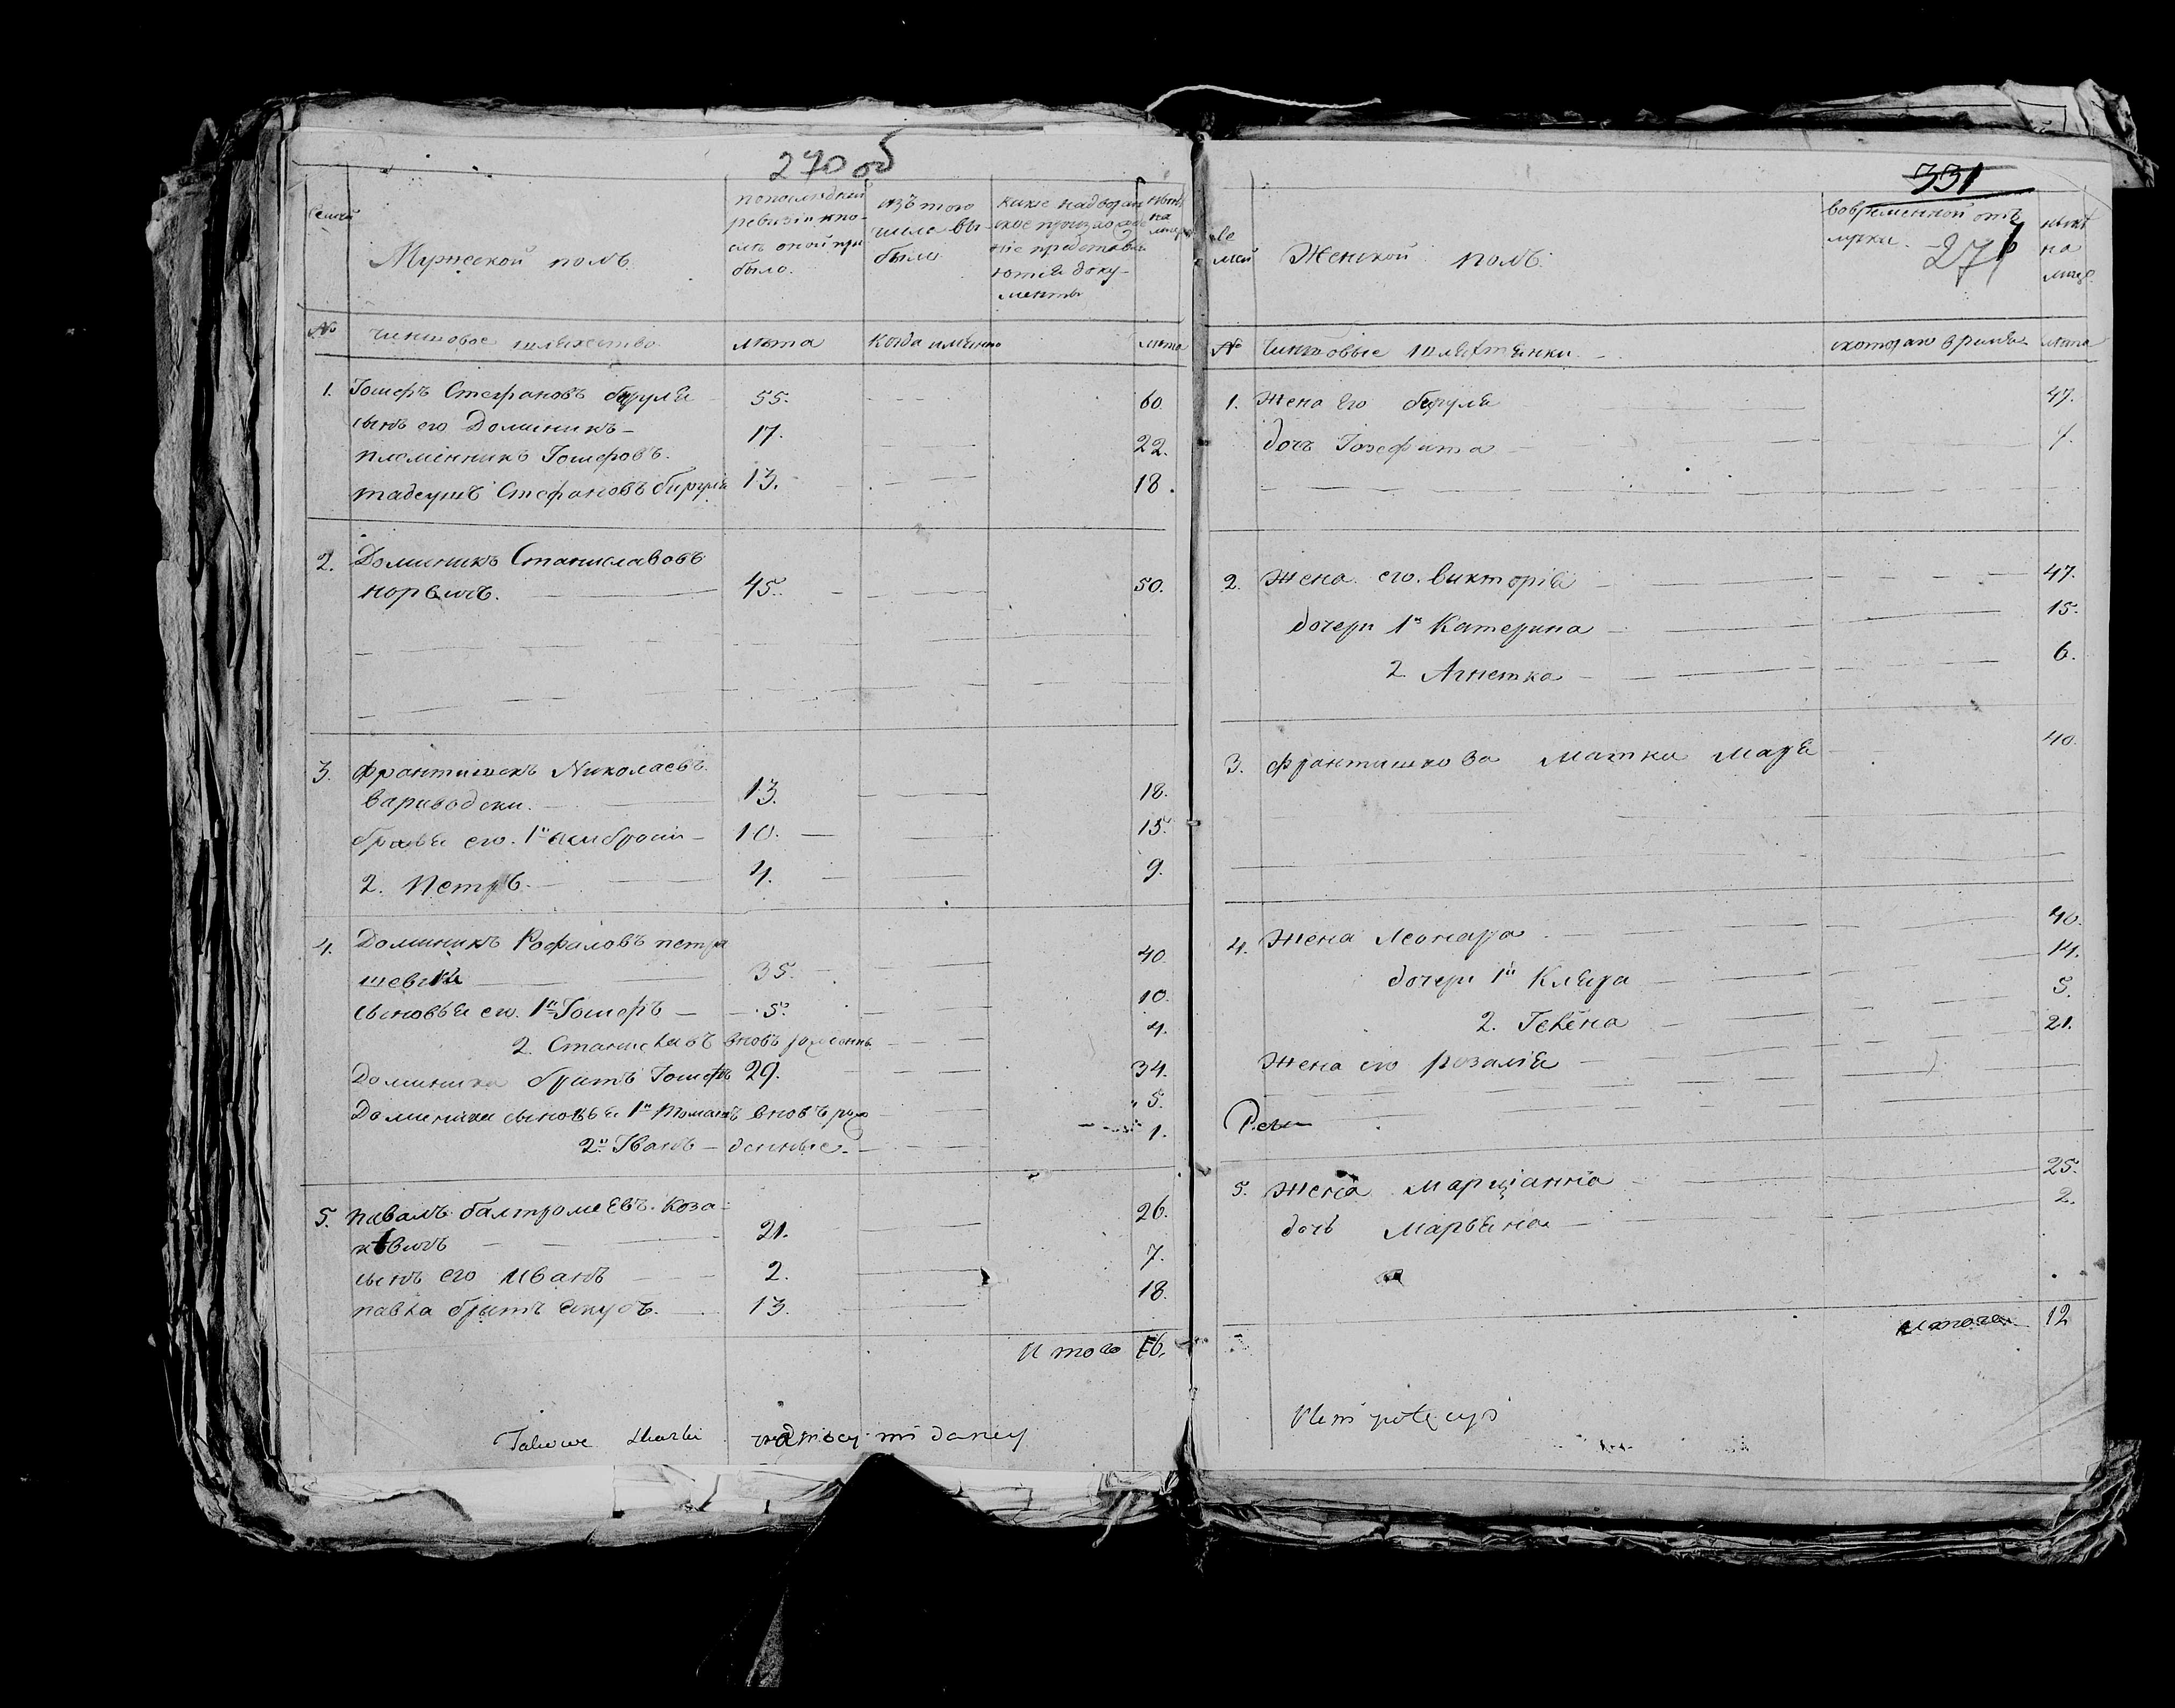 270 об
Семьи
Мужеской полъ
по последней
ревизіи и по-
слѣ оной при
было.
изъ того
числа вы-
было
какіе на дворян
ское произхожде
ніе представля
ютъся доку-
менты
нынѣ
на
лицо
№ чиншовое шляхетство лѣта когда именно лѣта
1. Іосифъ Стефановъ бируля 55. 60.
сынъ его Доминикъ 17. 22.
племінникъ Іосифовъ.
тадеушъ Стефановъ бируля 13. 18.
2. Доминикъ Станиславовъ
норвичъ. 45. 50.
3. Франтишекъ Николаевъ
вариводски. 13. 18.
братья его. 1й амброси 10. 15.
2. Петръ 4. 9.
4. Доминикъ Рофаловъ петра
шевски 35. 40.
сыновья его. 1й Іосифъ 5. 10.
2. Станиславъ вновъ рожденны 4.
Доминика братъ Іосифъ 29. 34.
Доминика сыновья 1й Томашъ вновъ рож 5.
2й Іванъ денные 1.
5. павалъ балтромеевъ коза-
кевичъ 21. 26.
сынъ его иванъ 2. 7.
павла братъ якубъ. 13. 18.
Итого 16.
331
271
Се
мьи
Женской полъ.
во врѣменной отъ
лучки.
нынѣ
на
лице
№ Чиншовые шляхтянки с котораго времяни лѣта
1. Жена его бируля 47.
дочъ Іозефата 7.
2. Жена его. викторія 47.
дочери 1я Катерина 15.
2 Агнетка 6.
3. Франтишкова матка Маря 40.
4. Жена Леонара 40.
дочери 1й Кляра 14.
2. Гелена 5.
Жена его розалія 21.
5. Жена марціанна 25.
дочь марьяна 2.
Итого 12